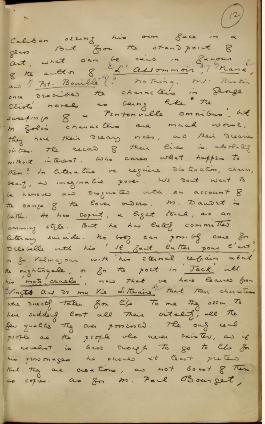 12
Caliban seeing his own face in a
glass. But from the standpoint of
art, what can be said in favour
of the author of "L'Assommoir", "Nana",
and "Pot-Bouille"? Nothing. Mr Ruskin
once described the characters in George
Eliot's novels as being like "the
sweepings of a Pentonville omnibus", but
M. Zola's characters are much worse.
They have their dreary vices, and their drearier
virtues. The record of their lives is absolutely
without interest. Who cares what happens to
them? In literature we require distinction, charm,
beauty, and imaginative power. We don't want to
be harrowed and disgusted with an account of
the doings of the lower orders. M. Daudet is
better. He has esprit, a light touch, and an
amusing style. But he has lately committed
literary suicide. Nobody can possibly care for
Delobelle with his "Il faut lutter pour l'art"
or for Valmajour with his eternal refrain about
the nightingale, or for the poet in Jack with
his mots cruels, now that we have learned from
Vingt Ans de ma Vie littéraire that these characters
were directly taken from life. To me they seem to
have suddenly lost all their vitality, all the
few qualities they ever possessed. The only real
people are the people who never existed, and if
a novelist is base enough to go to life for
his personages he should at least pretend
that they are creations, and not boast of them
as copies. As for M. Paul Bourget,